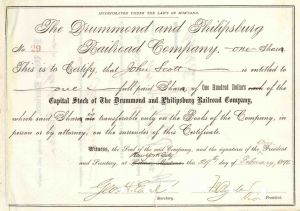 INCORPORATED UNDER THE LAWS OF MONTANA.
The Drummond and Philipsburg
No. 29 Railroad Company. one Share
This is to Certify, that John Scott is entitled to
one full paid Share of One Hundred Dollars each of the
Capital Stock of The Drummond and Philipsburg Railroad Company,
which said Share is transferable only on the Books of the Company, in
person or by attorney, on the surrender of this Certificate.
Witness, the Seal of the said Company, and the signatures of the President
and Secretary, at this day of February
Secretary. President.